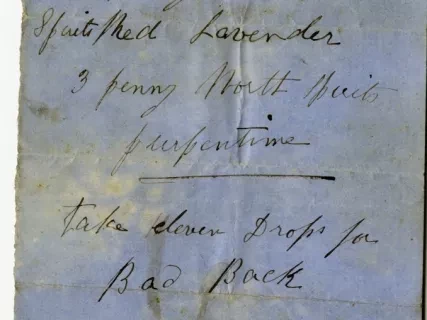 Spirits Red Lavender
3 penny Worth Spirits
purpentime
Take eleven Drops for
Bad Back